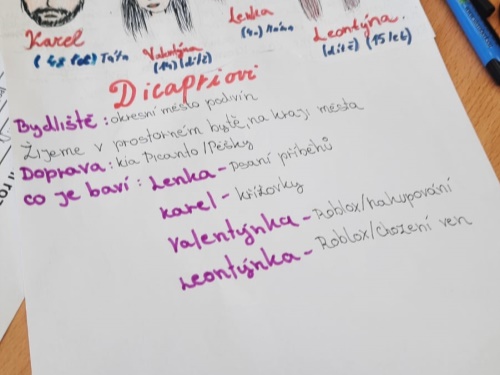 Karel
(48 let) Táta
Valentýna
(14) (dítě)
Lenka
(40) Máma
Leontýna.
(dítě) (15 let)
Dicapriovi
Bydliště: okresní města podivín
Žijeme v prostorném bytě, na kraji města
Doprava: kia Picanto/Pěšky
co je baví: Lenka - Psaní příběhů
Karel - křížovky
Valentýnka - Roblox/nakupování
Leontýnka - Roblox/chození ven